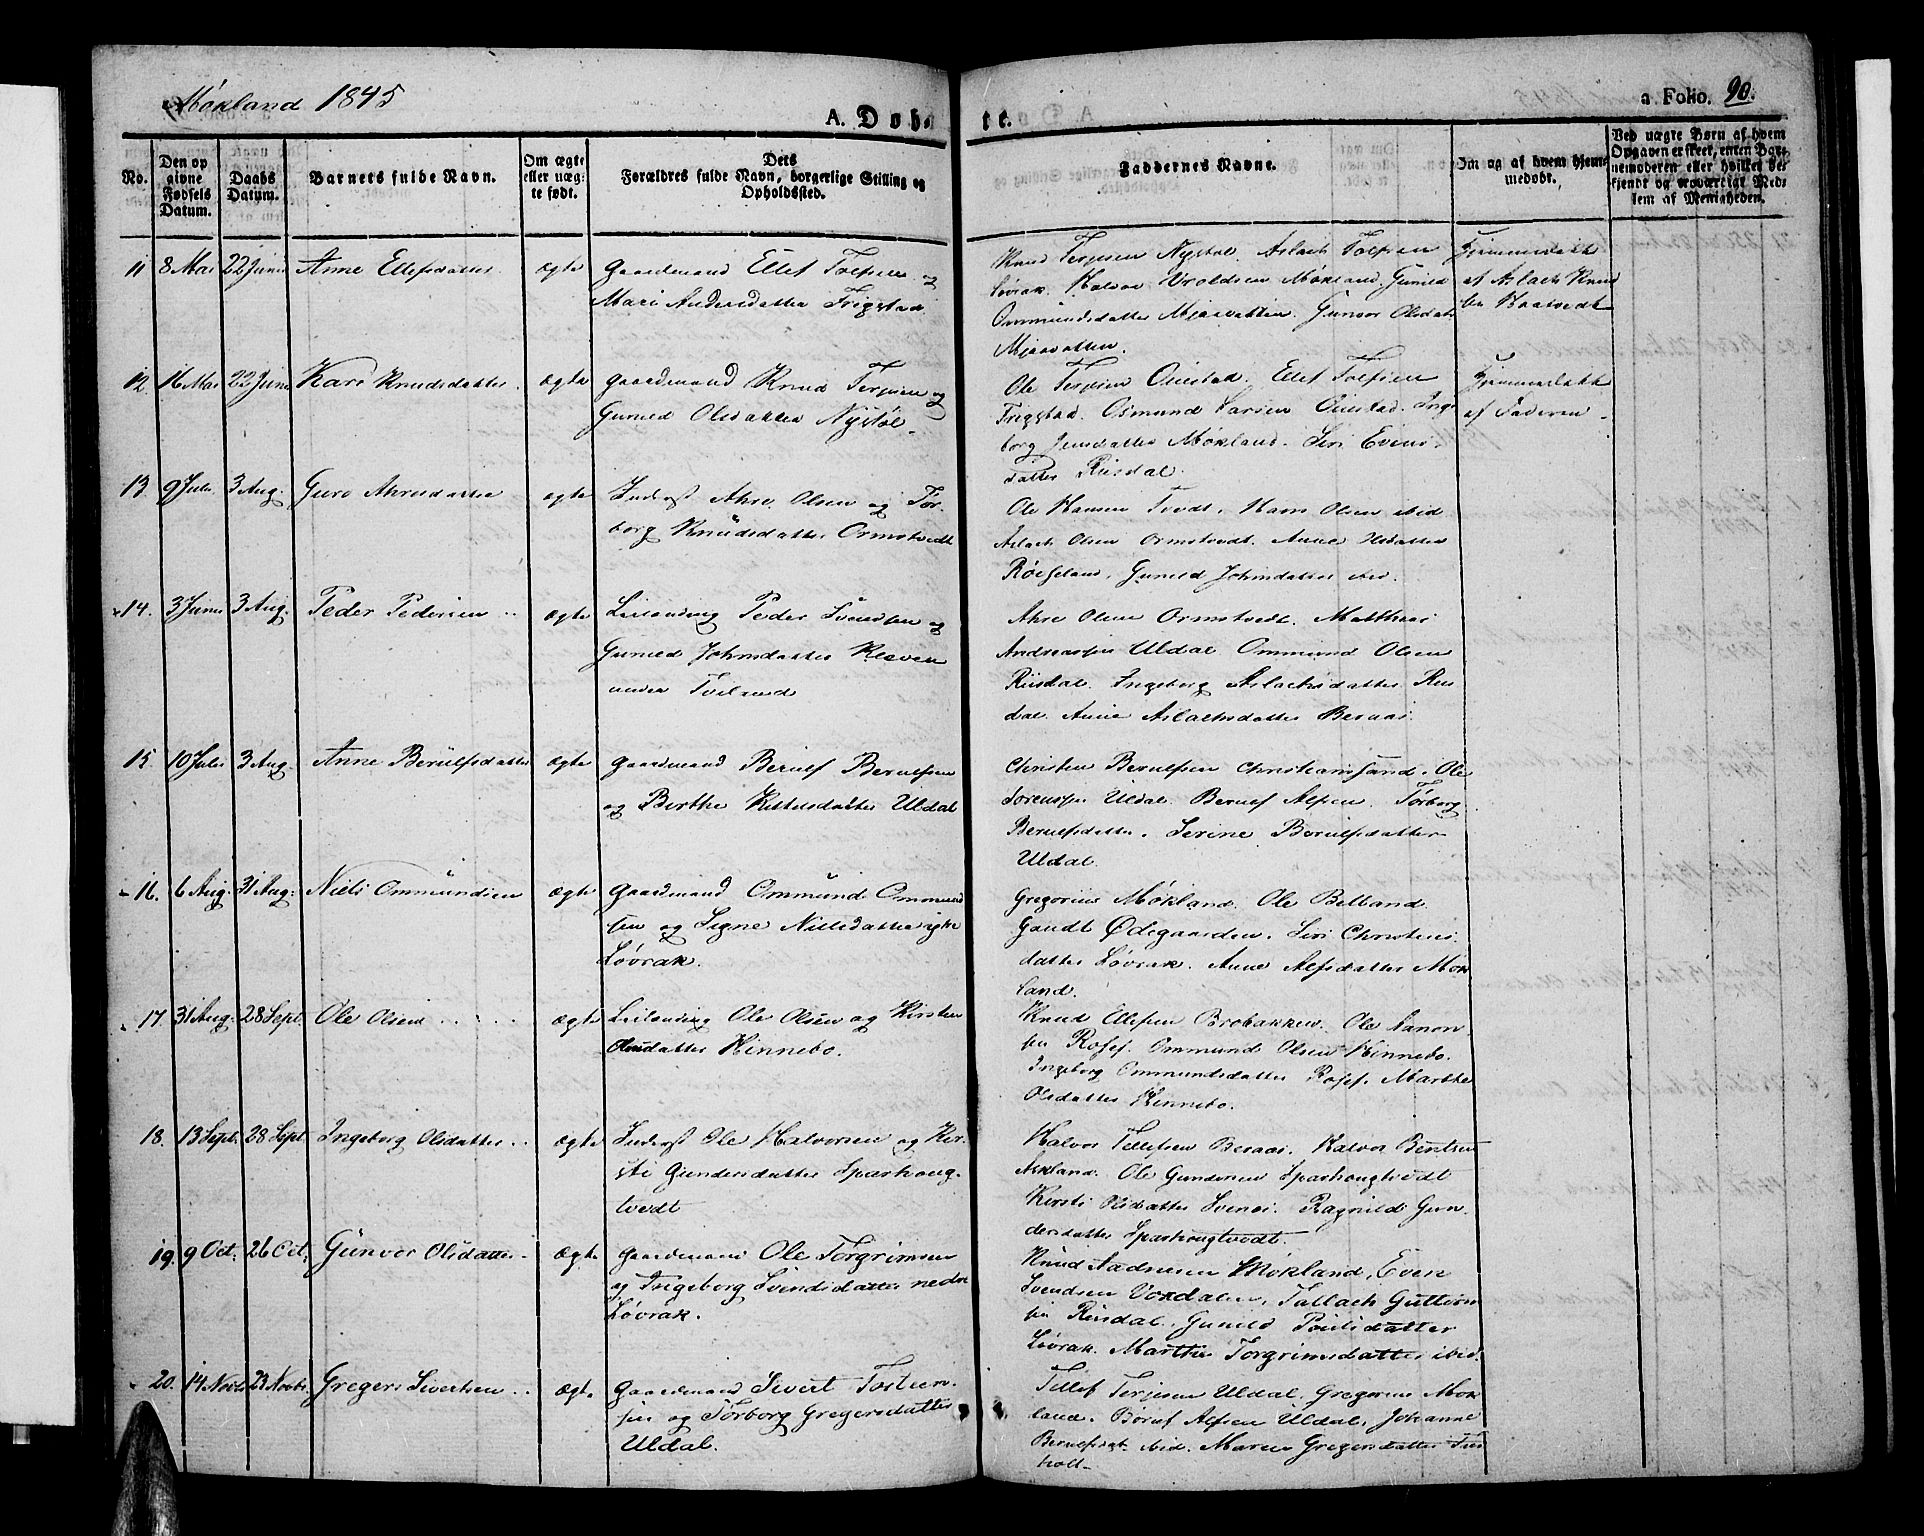 Mökland 1845
A. Døbte.
a Folio. 90.
No.
Den opgivne Fødsels Datum.
Daabs Datum.
Barnets fulde Navn.
Om ægte eller uægte født.
Dets Forældres fulde Navn, borgerlige Stilling og Opholdssted.
Faddernes Navne.
Om og af hvem hjemmedøbt.
Ved uægte Børn af hvem
Opgaven er skeet, enten Bar-
nemoderen eller hvilket be-
kjendt og troværdigt Med-
lem af Menigheden.
11 8 Mai 22 Juni Anne Ellefsdatter ægte Gaardmand Ellef Tolfsen og
Mari Andersdatter Frigstad
Knud Terjesen Nystøl. Aslach Tolfsen
Løvrak. Halvor Vroldsen Mökland. Gunild
Ommundsdatter Mjaavatten. Gunvor Olsdatt
Mjaavatten.
Hjemmedøbt
af Aslach Knud
sen Baasvedt
12. 16 Mai 22 Juni Kari Knudsdatter. ægte Gaardmand Knud Terjesen og
Gunild Olsdatter Nystöl
Ole Terjesen Oiestad. Ellef Tolfsen
Frigstad. Osmund Larsen Oiestad. Inge
borg Jensdatter Mökland. Siri Evens
datter Riisdal.
Hjemmedøbt
af Faderen
13 9 Juli 3 Aug. Guro Ahresdatter ægte Inderst Ahre Olsen og Tor
borg Knudsdatter Ormstvedt
Ole Hansen Tvedt. Hans Olsen ibid
Aslach Olsen Ormstvedt. Anne Olsdatter
Röiseland. Gunild Johnsdatter ibid.
14. 3 Juni 3 Aug Peder Pedersen ægte Leilænding Peder Svendsen og
Gunild Johnsdatter
under Tveland
Ahre Olsen Ormstvedt. Mathias
Andreassen Uldal Ommund Olsen
Riisdal. Ingeborg Aslachsdatter Riis
dal. Anne Aslachsdatter Beraas.
15. 10 Juli 3 Aug. Anne Berulfsdatter ægte Gaardmand Berulf Berulfsen
og Berthe Kittelsdatter Uldal
Christen Berulfsen Christianssand. Ole
Sorensen Uldal. Berulf Alfsen. Torborg
Berulfsdatter. Serine Berulfsdatter
Uldal.
16. 6 Aug. 31 Aug. Niels Ommundsen ægte Gaardmand Ommund Ommund
sen og Signe Nielsdatter
Løvrak.
Gregorius Mökland. Ole Beltband
Gundt Ødegaarden. Siri Christens
datter Løvrak. Anne Alfsdatter Mök
land.
17. 31 Aug. 28 Sept. Ole Olsen ægte Leilænding Ole Olsen og Kirsten
Olsdatter Hinnebo.
Knud Ellefsen Brobakken. Ole Aanon
sen Rosef. Ommund Olsen Hinnebo.
Ingeborg Ommundsdatter Rosef. Marthe
Olsdatter Hinnebo.
18. 13 Sept. 28 Sept Ingeborg Olsdatter ægte Inderst Ole Halvorsen og Kir
sti Gundersdatter Sparhougt
tvedt
Halvor Tellefsen Beraas. Halvor Bentsen
Askland. Ole Gundersen Sparhougtvedt
Kirsti Olsdatter Svenes. Ragnild Gun
dersdatter Sparhougtvedt.
19. 9 Oct. 26 Oct. Gunvor Olsdatter ægte Gaardmand Ole Torgrimsen
og Ingeborg Svendsdatter nedre
Løvrak.
Knud Aadnesen Mökland, Even
Svendsen Vordalen, Tallach Guttorm
sen Riisdal. Gunild Poulsdatter
Løvrak. Marthe Torgrimsdatter ibid.
20. 14 Novb 23 Novbr Gregers Sivertsen ægte Gaardmand Sivert Tostens
sen og Torborg Gregersdatter
Uldal.
Tellef Terjesen Uldal. Gregorius Mök
land. Böruf Alfsen Uldal, Johanne
Berulfsdat. ibid. Maren Gregersdatter
holt